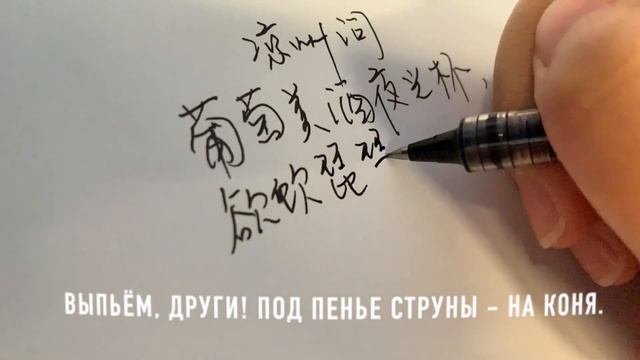 凉州词
葡萄美酒夜光杯,
欲饮琵琶
ВЫПЬЁМ, ДРУГИ! ПОД ПЕНЬЕ СТРУНЫ – НА КОНЯ.